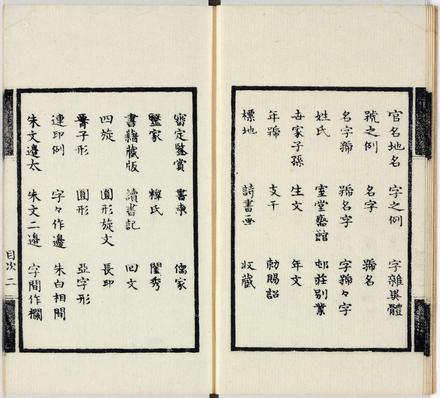 官名地名 字之例 字雜異體
號之例 名字 號名
名字號 號名字 字號々字
姓氏 室堂齋館 邨莊別業
吉家子孫 生文 年文
年號 支干 勅賜詔
標地 詩書画 收藏
審定鑒賞 書柬 儒家
鑒家 釋氏 閨秀
書籍藏版 讀書記 回文
四旋 圓形旋文 長印
子形 圓形 亞字形
連印例 字々作邊 朱白相間
朱文邊太 朱文二邊 字間作欄
目次 二